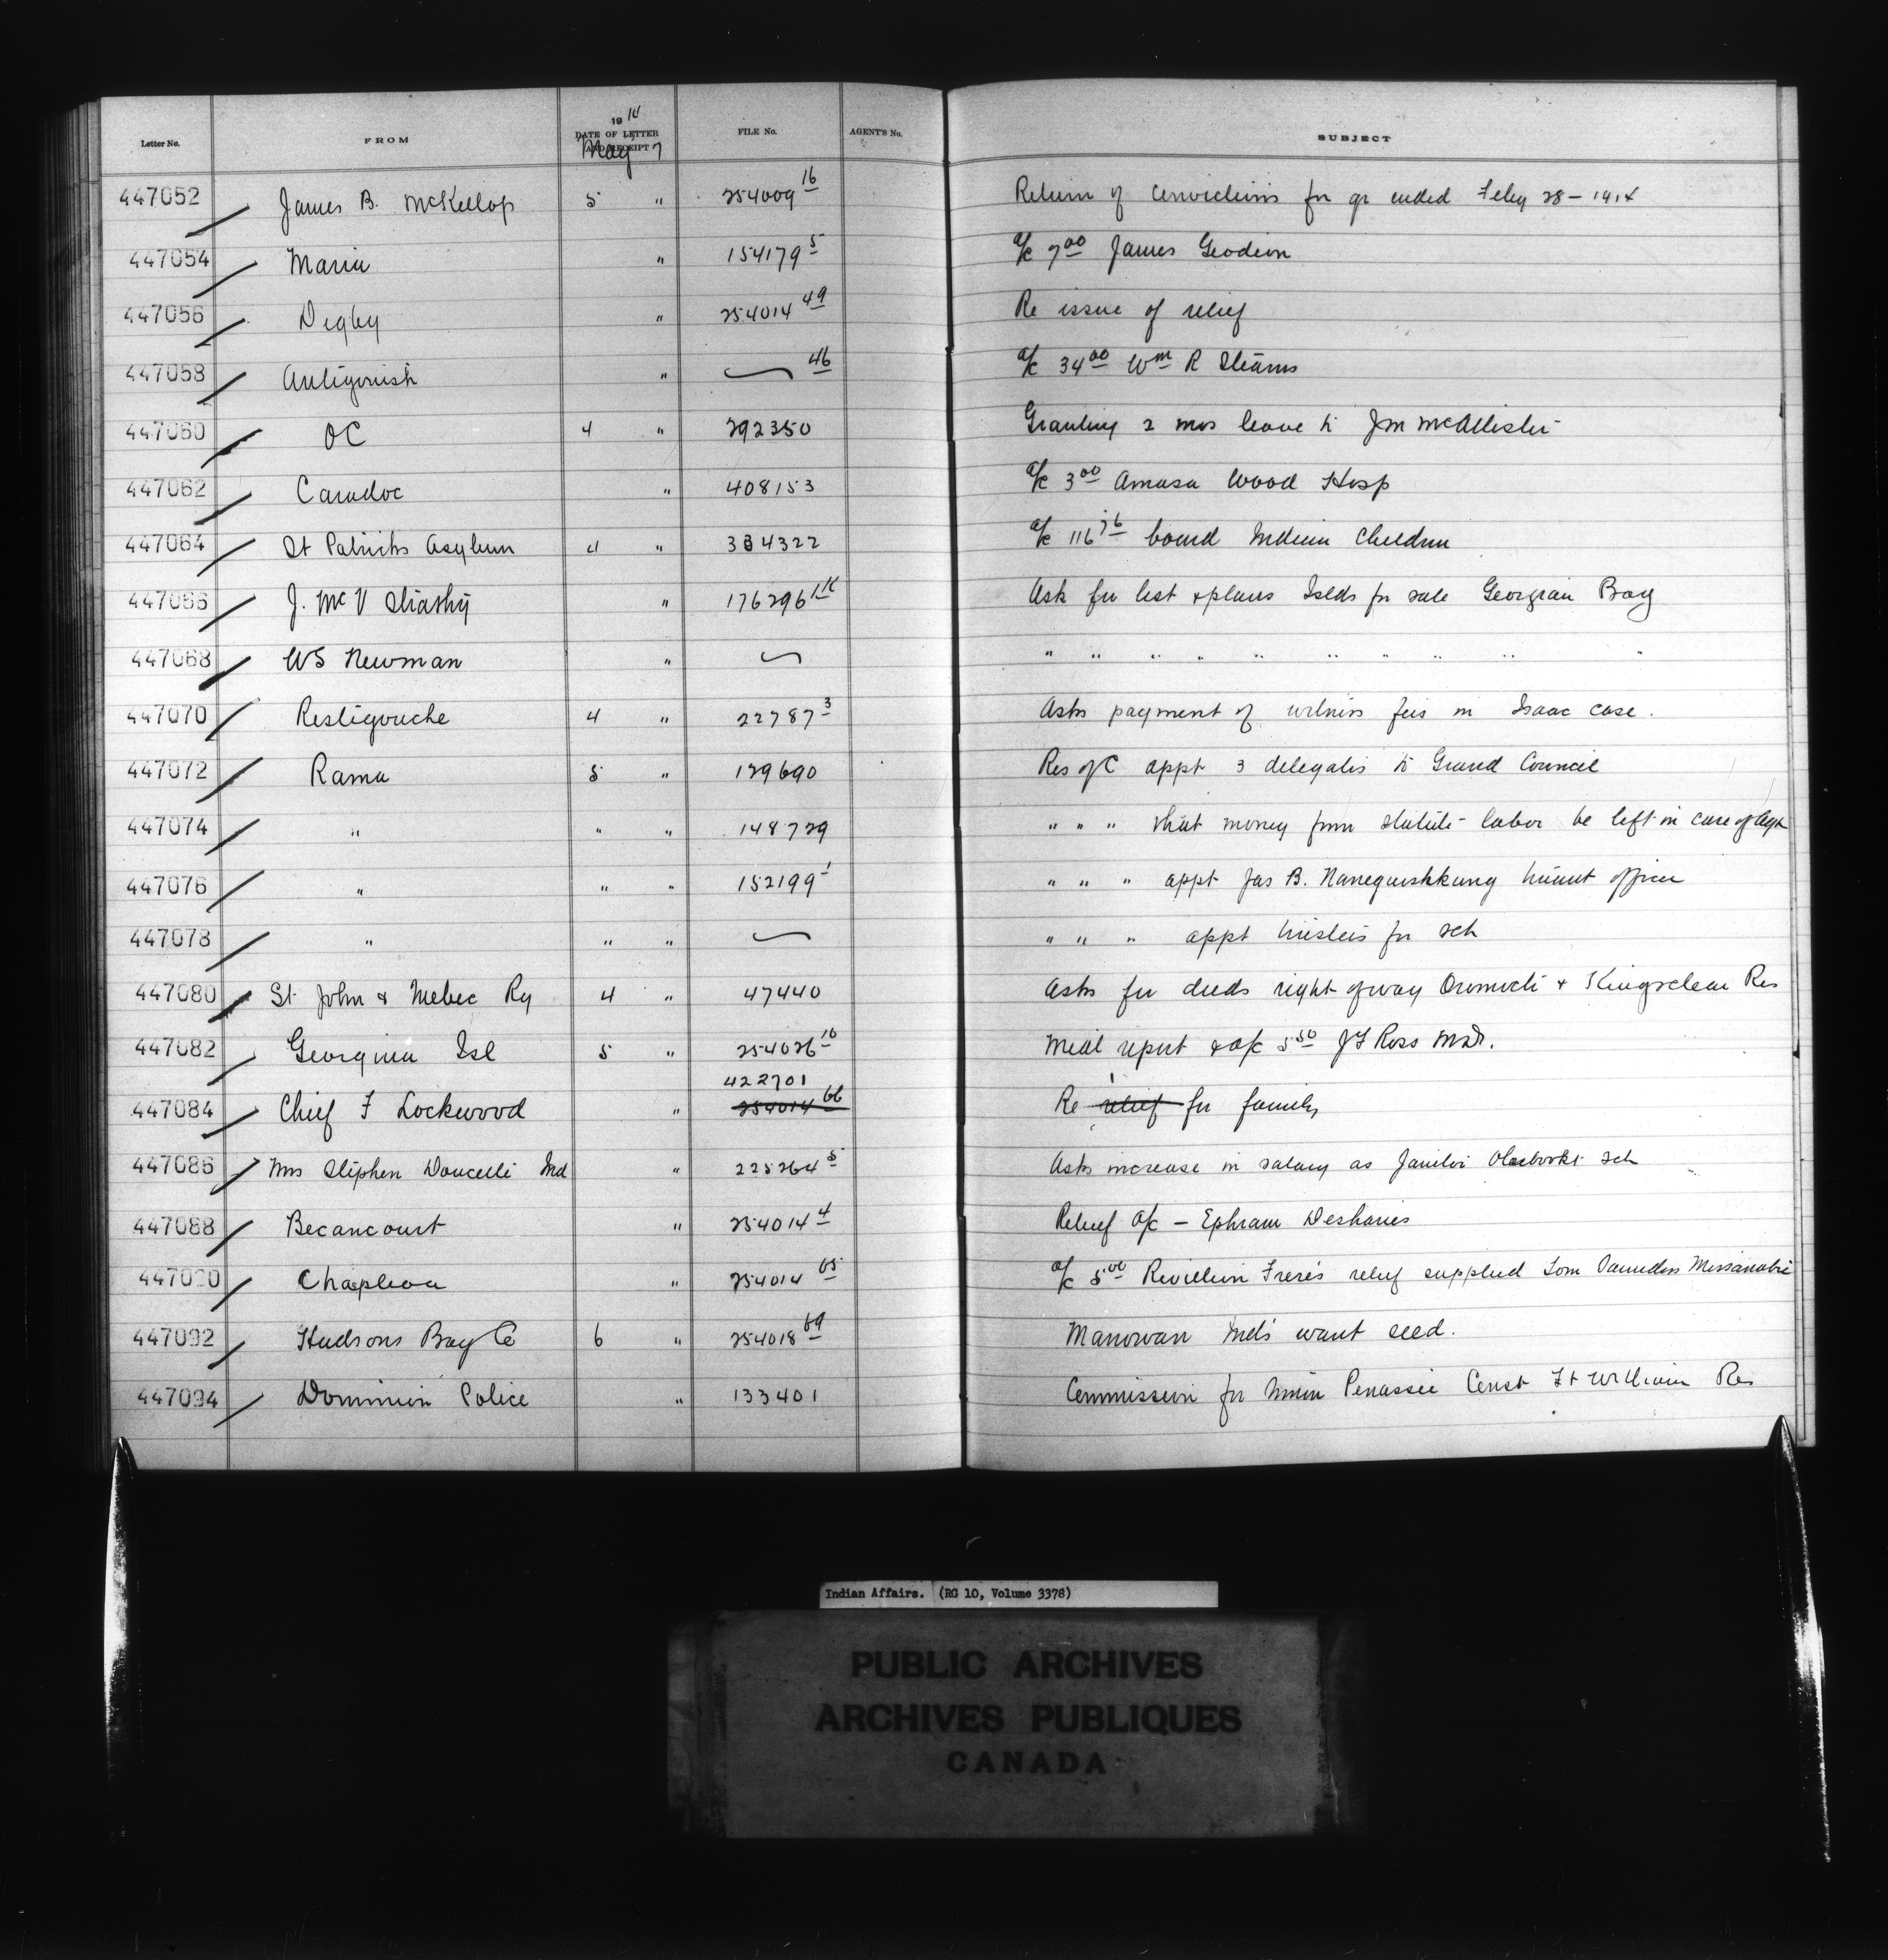 Letter No. FROM 1914 DATE OF LETTER AND RECEIPT FILE No. AGENT'S No. SUBJECT
May 7
447052 James B. McKellop 5 " 254009 16 Return of convictions for qr ended Feby 28 - 1914
447054 Maria " 154179 5 a/c 7 00 James
447056 Digby " 254014 49 Re issue of relief
447058 Antigonish " 46 a/c 34 00 Wm R Stearns
447060 OC 4 " 292350 Granting 2 mos leave to J M McAllister
447062 Caradoc " 408153 a/c 3 00 Amasa Wood Hosp
447064 St Patricks Asylum 4 " 334322 a/c 116 board Indian Children
447066 J. McV " 176296 Ask for list & plans Islds for sale Georgian Bay
447068 WS Newman " " " " " " " " " " "
447070 Restigouche 4 " 22787 3 Asks payment of witness fees in Isaac case.
447072 Rama 5 " 129690 Res of C appt 3 delegates to Grand Council
447074 " " " 148729 " " " that money from statute labor be left in care of Agt
447076 " " " 152199 1 " " " appt Jas B. Nanegwishkung truant officer
447078 " " " " " " appt trustees for sch
447080 St John & Mebec Ry 4 " 47440 Asks for deeds right of way Oromocto & Kingsclear Res
447082 Georgina Isl 5 " 254026 10 Medl report & a/c 5 50 J F Ross M.D.
422701
447084 Chief F Lockwood " 254014 66 Re relief for family
447086 Mrs Stephen Doucette Ind " 225264 5 Asks increase in salary as Janitor sch
447088 Becancourt " 254014 4 Relief a/c - Ephram Deshanies
447090 Chapleau " 254014 65 a/c 5 00 Revillion Freres relief supplied Tom Saunders Missanabie
447092 Hudsons Bay Co 6 " 254018 69 Manowan Inds want seed.
447094 Dominion Police " 133401 Commission for Penassie Const Ft William Res
Indian Affairs. (RG 10, Volume 3378)
PUBLIC ARCHIVES
ARCHIVES PUBLIQUES
CANADA